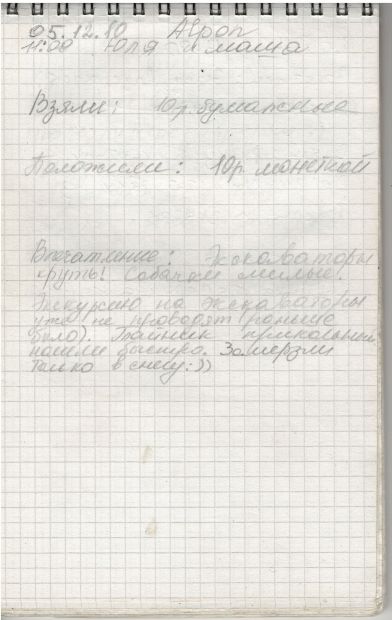 05.12.10 Агроп
11:00 Юля и маша
Взяли: 10р. бумажные
Положили: 10р монеткой
Впечатление: Экскаваторы
круть! Собачки милые.
Экскурсию на экскаваторы
уже не проводят (раньше
было). Тайник прикольный
нашли быстро. Замерзли
только в снегу:))